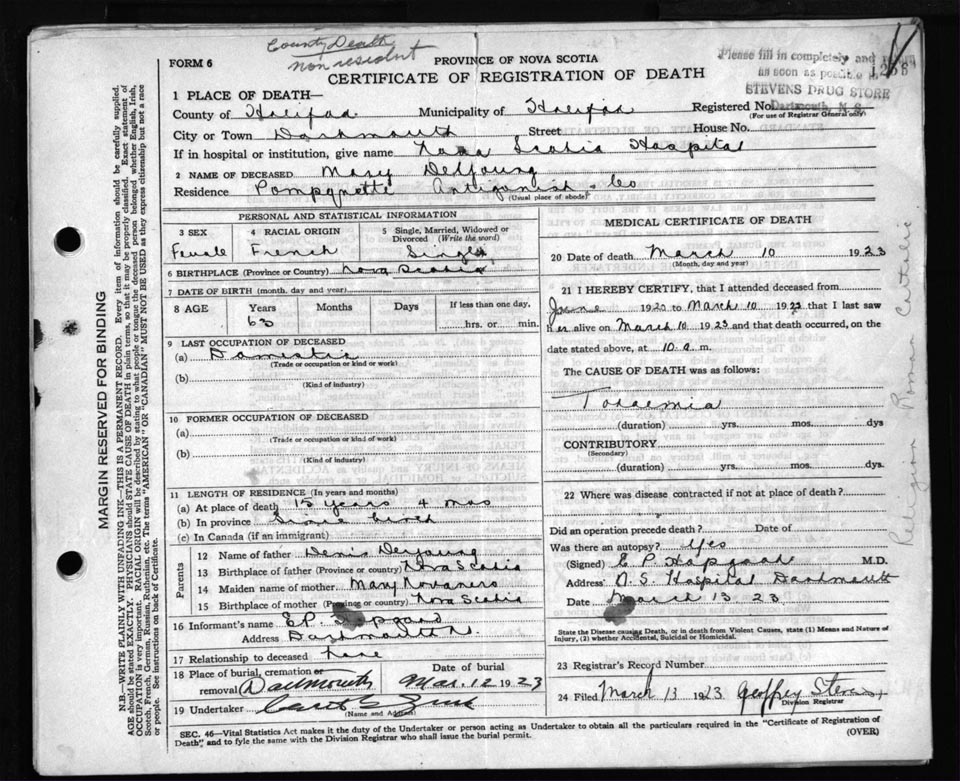 County Death
non resident
FORM 6
PROVINCE OF NOVA SCOTIA
CERTIFICATE OF REGISTRATION OF DEATH
Please fill in completely and
as soon as
STEVENS DRUG STORE
Dartmouth, N. S.
1 PLACE OF DEATH—
County of Halifax Municipality of Halifax Registered No.
(For use of Registrar General only)
City or Town Dartmouth Street House No.
If in hospital or institution, give name Nova Scotia Hospital
2 NAME OF DECEASED Mary DeYoung
Residence Antigonish Co
(Usual place of abode)
PERSONAL AND STATISTICAL INFORMATION
3 SEX
Female
4 RACIAL ORIGIN
French
5 Single, Married, Widowed or
Divorced (Write the word)
Single
6 BIRTHPLACE (Province or Country) Nova Scotia
7 DATE OF BIRTH (month, day and year)
8 AGE
Years
63
Months
Days
If less than one day,
hrs. or min.
9 LAST OCCUPATION OF DECEASED
(a) Domestic
(Trade or occupation or kind or work)
(b)
(Kind of industry)
10 FORMER OCCUPATION OF DECEASED
(a)
(Trade or occupation or kind of work)
(b)
(Kind of industry)
11 LENGTH OF RESIDENCE (In years and months)
(a) At place of death 15 years 4 mos
(b) In province Since birth
(c) In Canada (if an immigrant)
Parents
12 Name of father Denis DeYoung
13 Birthplace of father (Province or country) Nova Scotia
14 Maiden name of mother Mary
15 Birthplace of mother (Province or country) Nova Scotia
16 Informant's name E P Hopgood
Address Dartmouth N.S.
17 Relationship to deceased
18 Place of burial, cremation or
removal Dartmouth
Date of burial
Mar. 12 1923
19 Undertaker
(Name and Address)
MEDICAL CERTIFICATE OF DEATH
20 Date of death March 10 1923
(Month, day and year)
21 I HEREBY CERTIFY, that I attended deceased from
June 1920 to March 10 1923 that I last saw
her alive on March 10 1923 and that death occurred, on
the date stated above, at 10 a. m.
The CAUSE OF DEATH was as follows:
Toxaemia
(duration) yrs. mos. dys
CONTRIBUTORY
(Secondary)
(duration) yrs. mos. dys.
22 Where was disease contracted if not at place of death?
Did an operation precede death? Date of
Was there an autopsy? Yes
(Signed) E P Hopgood M.D.
Address N. S. Hospital Dartmouth
Date March 13 23
State the Disease causing Death, or in death from Violent Causes, state (1) Means and Nature of
Injury, (2) whether Accidental, Suicidal or Homicidal.
23 Registrar's Record Number
24 Filed March 13 1923 Geoffrey Stevens
Division Registrar
SEC. 46—Vital Statistics Act makes it the duty of the Undertaker or person acting as Undertaker to obtain all the particulars required in the "Certificate of Registration of
Death" and to fyle the same with the Division Registrar who shall issue the burial permit.
(OVER)
MARGIN RESERVED FOR BINDING
N.B.—WRITE PLAINLY WITH UNFADING INK—THIS IS A PERMANENT RECORD. Every item of information should be carefully supplied.
AGE should be stated EXACTLY. PHYSICIANS should STATE CAUSE OF DEATH in plain terms, so that it may be properly classified. Exact statement of
OCCUPATION is very important. RACIAL ORIGIN will be described by stating to what people or tongue the deceased person belonged whether English, Irish,
Scotch, French, German, Russian, Ruthenian, etc. The terms "AMERICAN" OR "CANADIAN" MUST NOT BE USED as they express citizenship but not a race
or people. See instructions on back of Certificate.
Religion Roman Catholic